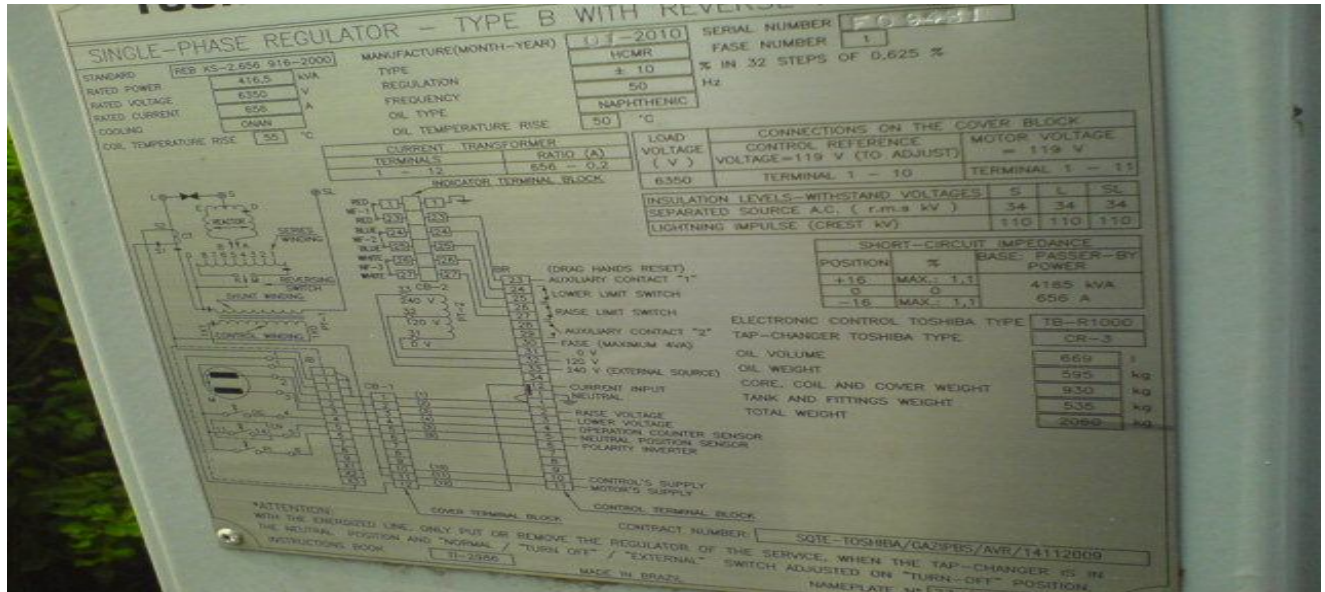 SINGLE-PHASE REGULATOR - TYPE B WITH REVERSE
STANDARD REB KS-2.656 916-2000
RATED POWER 416,5 kVA
RATED VOLTAGE 6350 V
RATED CURRENT 656 A
COOLING ONAN
COIL TEMPERATURE RISE 55 °C
MANUFACTURE(MONTH-YEAR) 2010
TYPE HCMR
REGULATION ± 10 % IN 32 STEPS OF 0,625 %
FREQUENCY 50 Hz
OIL TYPE NAPHTHENIC
OIL TEMPERATURE RISE 50 °C
SERIAL NUMBER
FASE NUMBER 1
CURRENT TRANSFORMER
TERMINALS RATIO (A)
1 - 12 656 - 0,2
LOAD VOLTAGE (V)
CONNECTIONS ON THE COVER BLOCK
CONTROL REFERENCE VOLTAGE=119 V (TO ADJUST)
MOTOR VOLTAGE = 119 V
6350 TERMINAL 1 - 10 TERMINAL 1 - 11
INSULATION LEVELS-WITHSTAND VOLTAGES S L SL
SEPARATED SOURCE A.C. ( r.m.s kV ) 34 34 34
LIGHTNING IMPULSE (CREST kV) 110 110 110
SHORT-CIRCUIT IMPEDANCE
POSITION % BASE: PASSER-BY POWER
+16 MAX.: 1,1
0 0
-16 MAX.: 1,1
4165 kVA
656 A
ELECTRONIC CONTROL TOSHIBA TYPE TB-R1000
TAP-CHANGER TOSHIBA TYPE CR-3
OIL VOLUME 669 l
OIL WEIGHT 595 kg
CORE, COIL AND COVER WEIGHT 930 kg
TANK AND FITTINGS WEIGHT 535 kg
TOTAL WEIGHT 2060 kg
INDICATOR TERMINAL BLOCK
RED 1 1
MF-1
RED 23 23
BLUE 24 24
MF-2
BLUE 25 25
WHITE 26 26
MF-3
WHITE 27 27
REACTOR
SERIES WINDING
REVERSING SWITCH
SHUNT WINDING
CONTROL WINDING
33 CB-2
240 V
32
120 V
31
0 V
CB-1
(DRAG HANDS RESET)
AUXILIARY CONTACT "1"
LOWER LIMIT SWITCH
RAISE LIMIT SWITCH
AUXILIARY CONTACT "2"
FASE (MAXIMUM 4VA)
0 V
120 V
240 V (EXTERNAL SOURCE)
CURRENT INPUT
NEUTRAL
RAISE VOLTAGE
LOWER VOLTAGE
OPERATION COUNTER SENSOR
NEUTRAL POSITION SENSOR
POLARITY INVERTER
CONTROL'S SUPPLY
MOTOR'S SUPPLY
COVER TERMINAL BLOCK
CONTROL TERMINAL BLOCK
CONTRACT NUMBER: SQTE-TOSHIBA/GAZIPBS/AVR/14112009
*ATTENTION:
WITH THE ENERGIZED LINE, ONLY PUT OR REMOVE THE REGULATOR OF THE SERVICE, WHEN THE TAP-CHANGER IS IN
THE NEUTRAL POSITION AND "NORMAL / "TURN OFF" / "EXTERNAL" SWITCH ADJUSTED ON "TURN-OFF" POSITION
INSTRUCTIONS BOOK TI-2986
MADE IN BRAZIL
NAMEPLATE